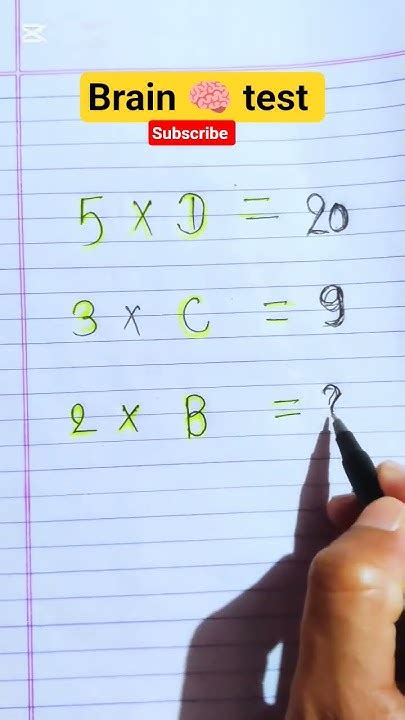 Brain 🧠 test
Subscribe
5 × D = 20
3 × C = 9
2 × B = ?